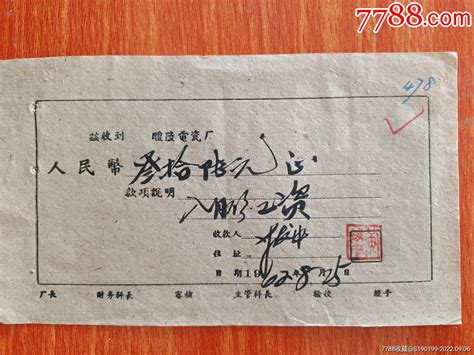 7788.com
478
兹收到 醴陵電瓷厂
人民幣 叁拾陆元 正
款项説明 八月 工资
收款人
住址
日期19 62年8月25日
厂长 财务科长 審核 主管科长 驗收 經手
7788收藏@S190199-2022.09.06